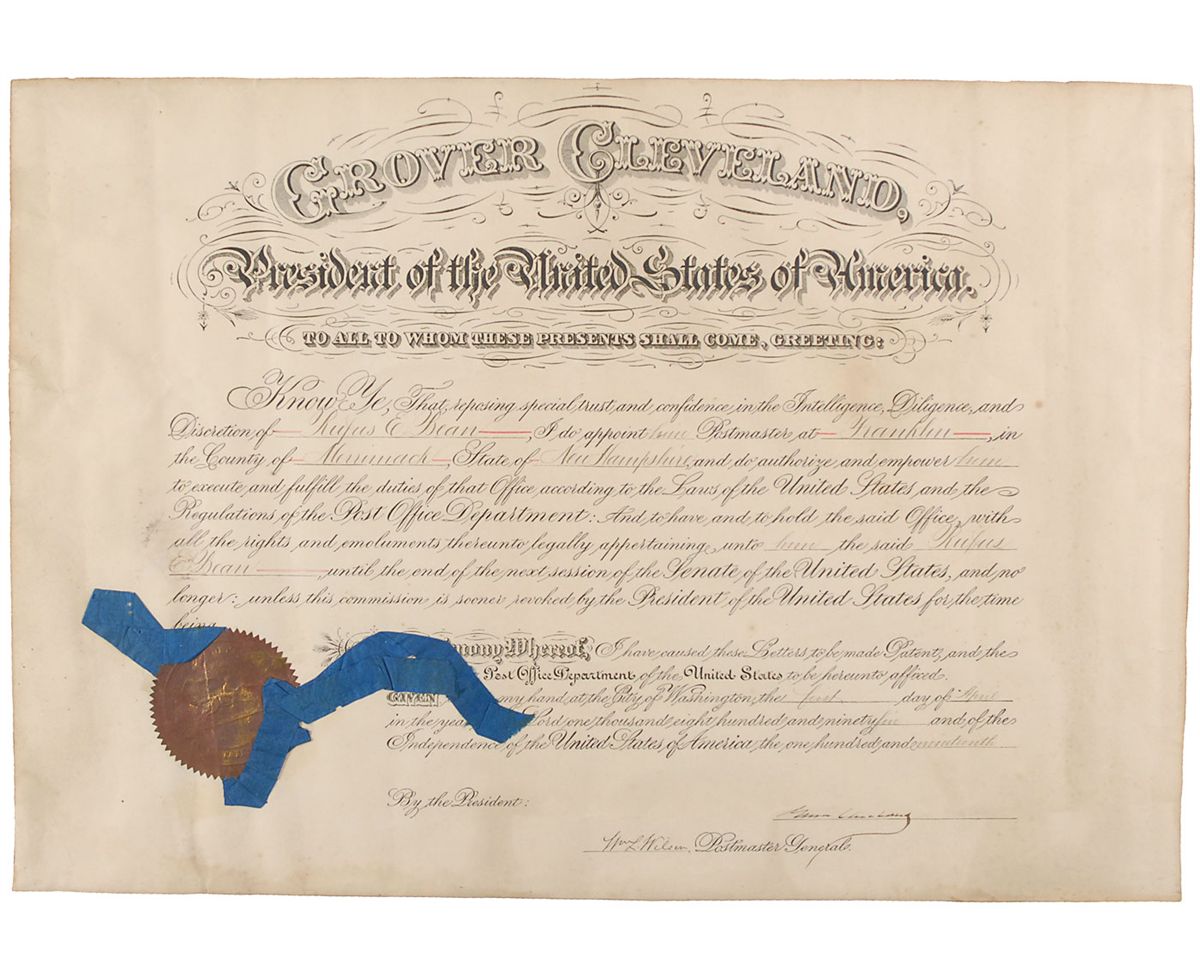 GROVER CLEVELAND,
President of the United States of America.
TO ALL TO WHOM THESE PRESENTS SHALL COME, GREETING:
Know Ye, That, reposing special trust and confidence in the Intelligence, Diligence, and
Discretion of Rufus E Dean, I do appoint him Postmaster at Franklin, in
the County of Merrimack, State of New Hampshire, and do authorize and empower him
to execute and fulfill the duties of that Office according to the Laws of the United States and the
Regulations of the Post Office Department: And to have and to hold the said Office, with
all the rights and emoluments thereunto legally appertaining, unto him the said Rufus
E Dean, until the end of the next session of the Senate of the United States, and no
longer; unless this commission is sooner revoked by the President of the United States for the time
being.
mony Whereof, I have caused these Letters to be made Patent, and the
Post Office Department of the United States to be hereunto affixed.
GIVEN my hand, at the City of Washington, the first day of April
in the year Lord one thousand eight hundred and ninety and of the
Independence of the United States of America the one hundred and nineteenth
By the President:
Wm L Wilson, Postmaster General.